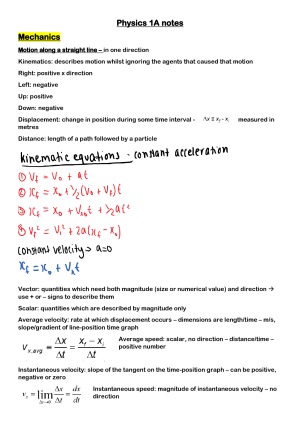 Physics 1A notes
Mechanics
Motion along a straight line – in one direction
Kinematics: describes motion whilst ignoring the agents that caused that motion
Right: positive x direction
Left: negative
Up: positive
Down: negative
Displacement: change in position during some time interval - Δx ≡ xf - xi measured in
metres
Distance: length of a path followed by a particle
kinematic equations - constant acceleration
① Vf = Vo + at
② xf = xo + 1/2 (Vo + Vf) t
③ xf = xo + Vxo t + 1/2 at²
Vf² = Vi² + 2a(xf - xo)
constant velocity → a=0
xf = xo + Vx t
Vector: quantities which need both magnitude (size or numerical value) and direction →
use + or – signs to describe them
Scalar: quantities which are described by magnitude only
Average velocity: rate at which displacement occurs – dimensions are length/time – m/s,
slope/gradient of line-position time graph
Vx,avg = Δx/Δt = (xf – xi)/Δt
Average speed: scalar, no direction – distance/time –
positive number
Instantaneous velocity: slope of the tangent on the time-position graph – can be positive,
negative or zero
vx = lim Δt→0 Δx/Δt = dx/dt
Instantaneous speed: magnitude of instantaneous velocity – no
direction